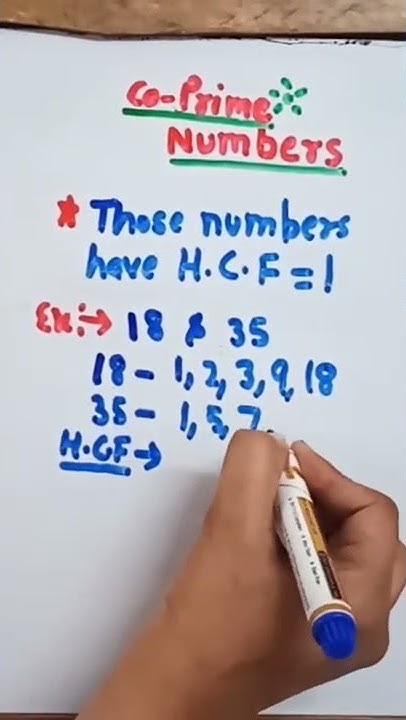 Co-Prime
Numbers
* Those numbers
have H.C.F = 1
Ex:→ 18 & 35
18 - 1, 2, 3, 9, 18
35 - 1, 5, 7,
H.CF →